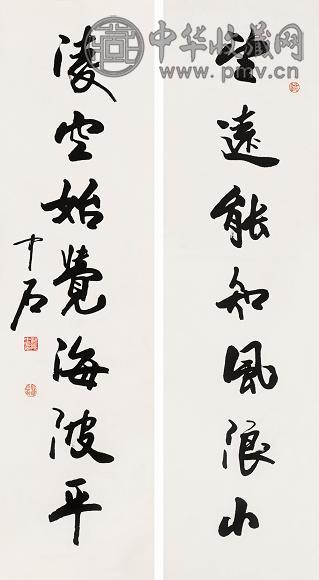 中华收藏网
www.pmv.cn
望遠能知風浪小
凌空始覺海波平
中石